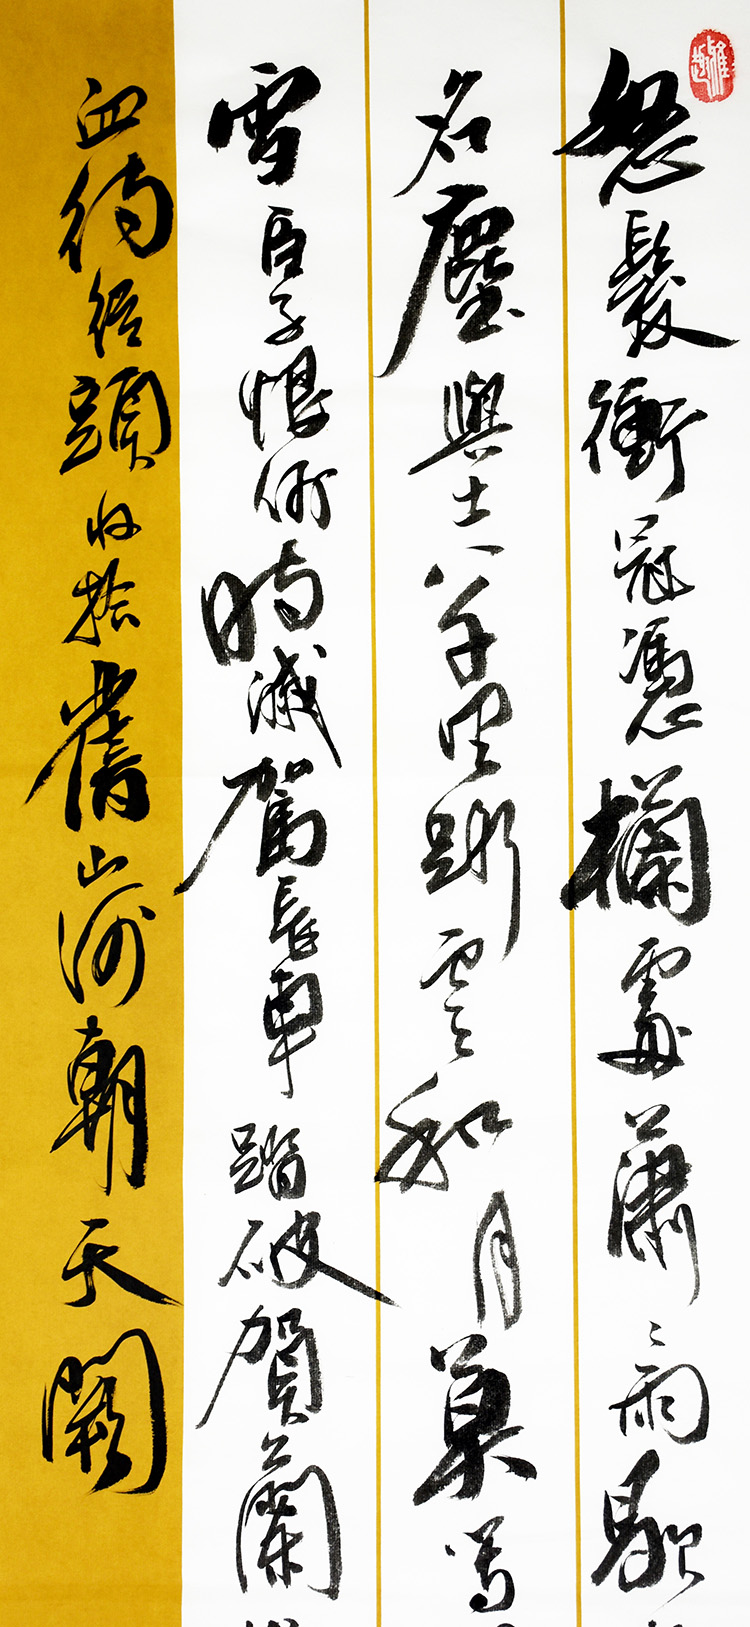 怒髮衝冠憑欄處蕭〻雨歇
名塵與土八千里路雲和月莫等
雪臣子恨何時滅駕長車踏破賀蘭
血待從頭收拾舊山河朝天闕